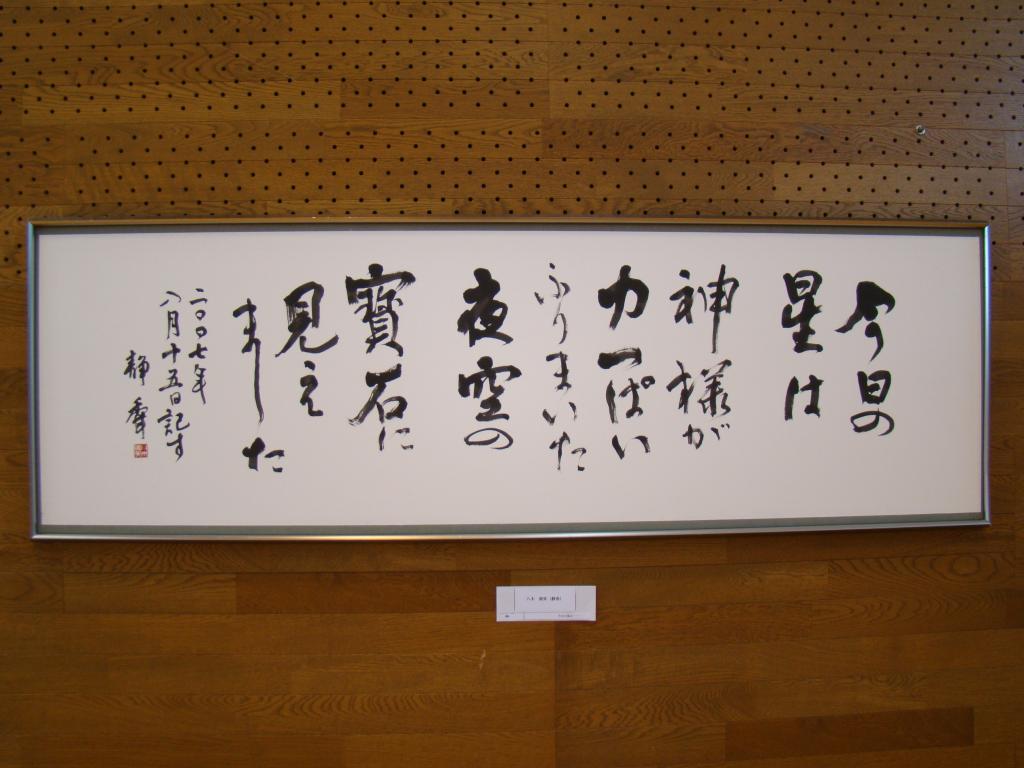 今日の
星は
神様が
力一ぱい
ふりまいた
夜空の
寶石に
見え
ました
二〇〇七年
八月十五日記す
静